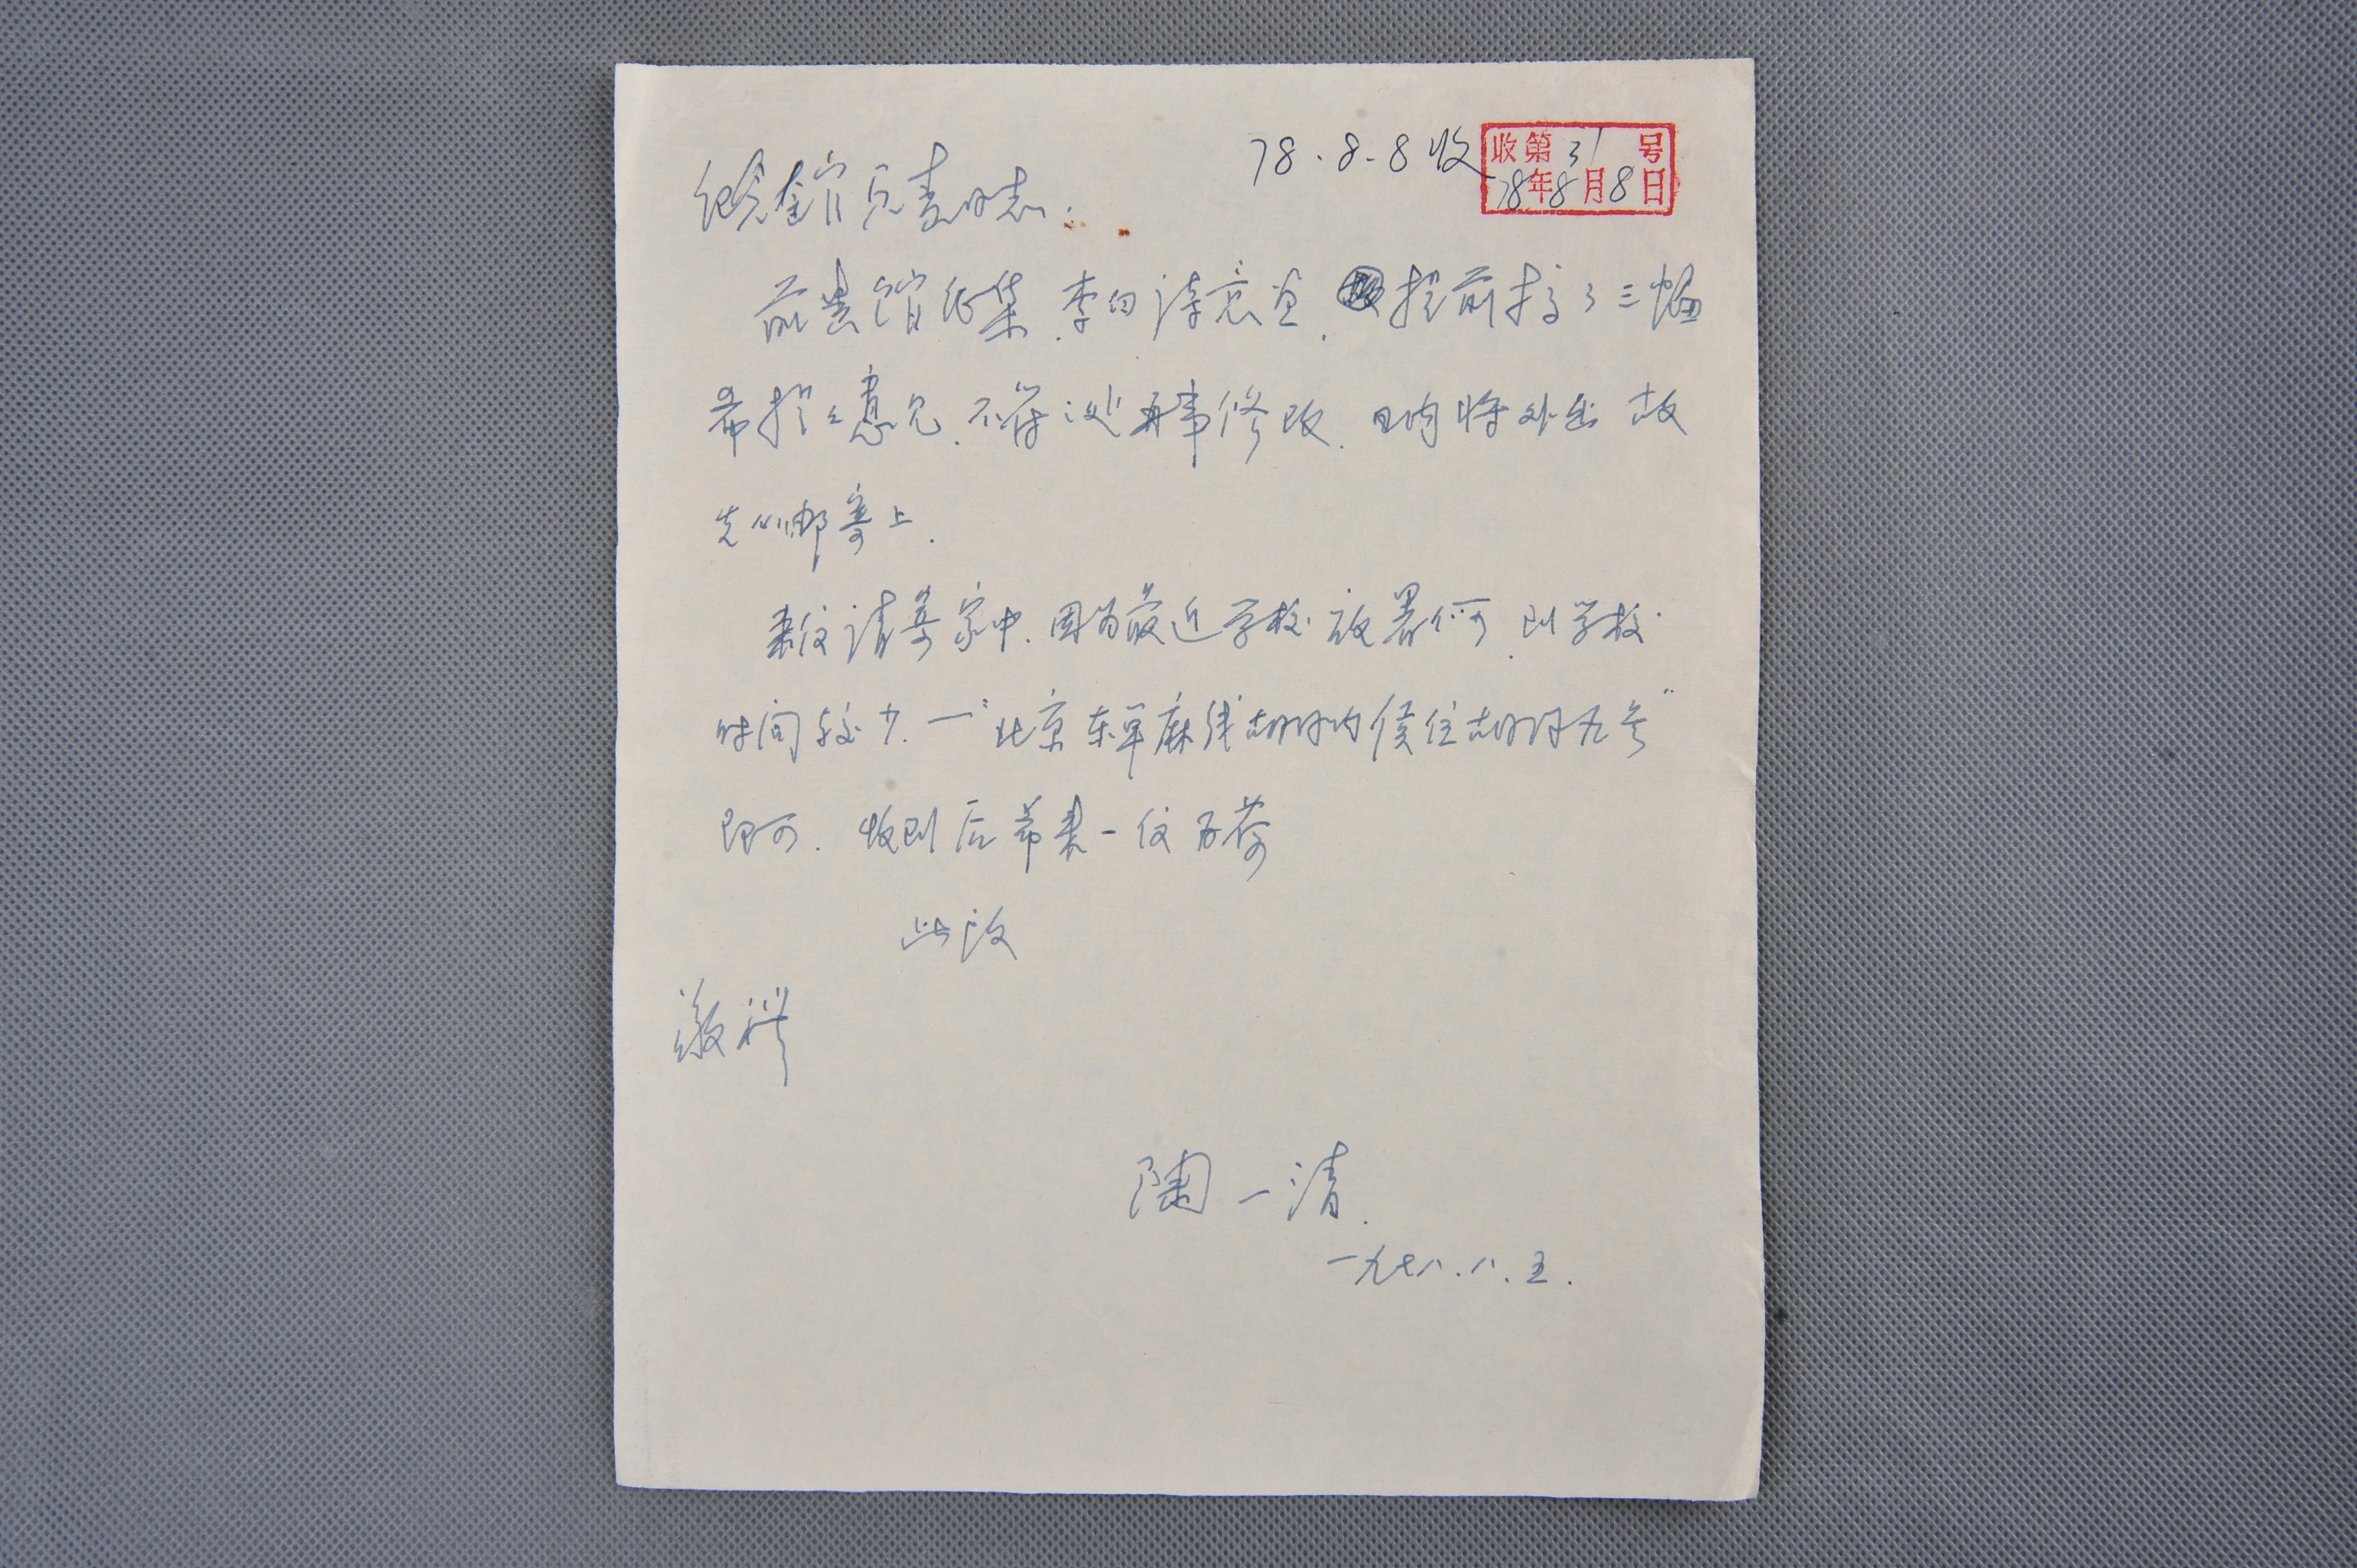 78.8.8收
收第31号
78年8月8日
纪念馆负责同志.
前贵馆征集.李白诗意画.提前搞了三幅
希提之意见.不符之处再事修改.日内将外出故
先以邮寄上.
来信请寄家中.因为最近学校放暑假.到学校
时间较少.—“北京东单麻线胡同内侯位胡同九号”
即可.收到后希来一信为荷
此致
敬礼
陶一清.
一九七八.八.五.